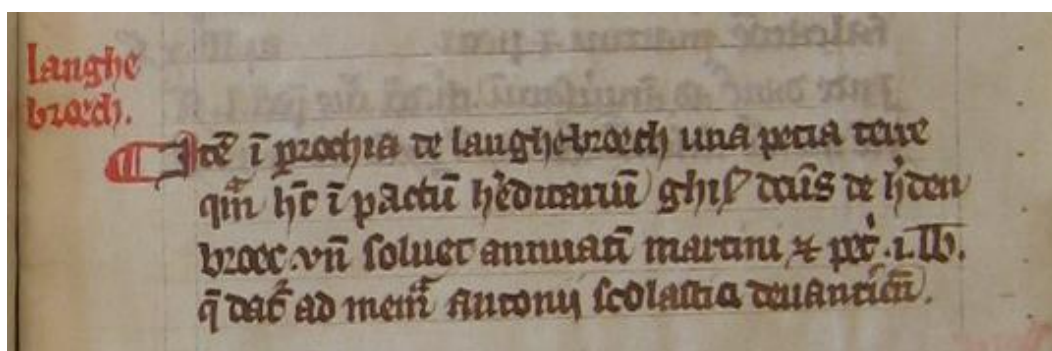 langhe
broech.
Itē ī prochia de langhebroech una pecia terre
qm̄ hr̄t ī pactū h'editariū ghis' dcūs de h'den
broec. vn̄ soluet annuatī martini & pet' .i. lb.
q̄ dat' ad mem' antonij scolastici dauantrien̄.